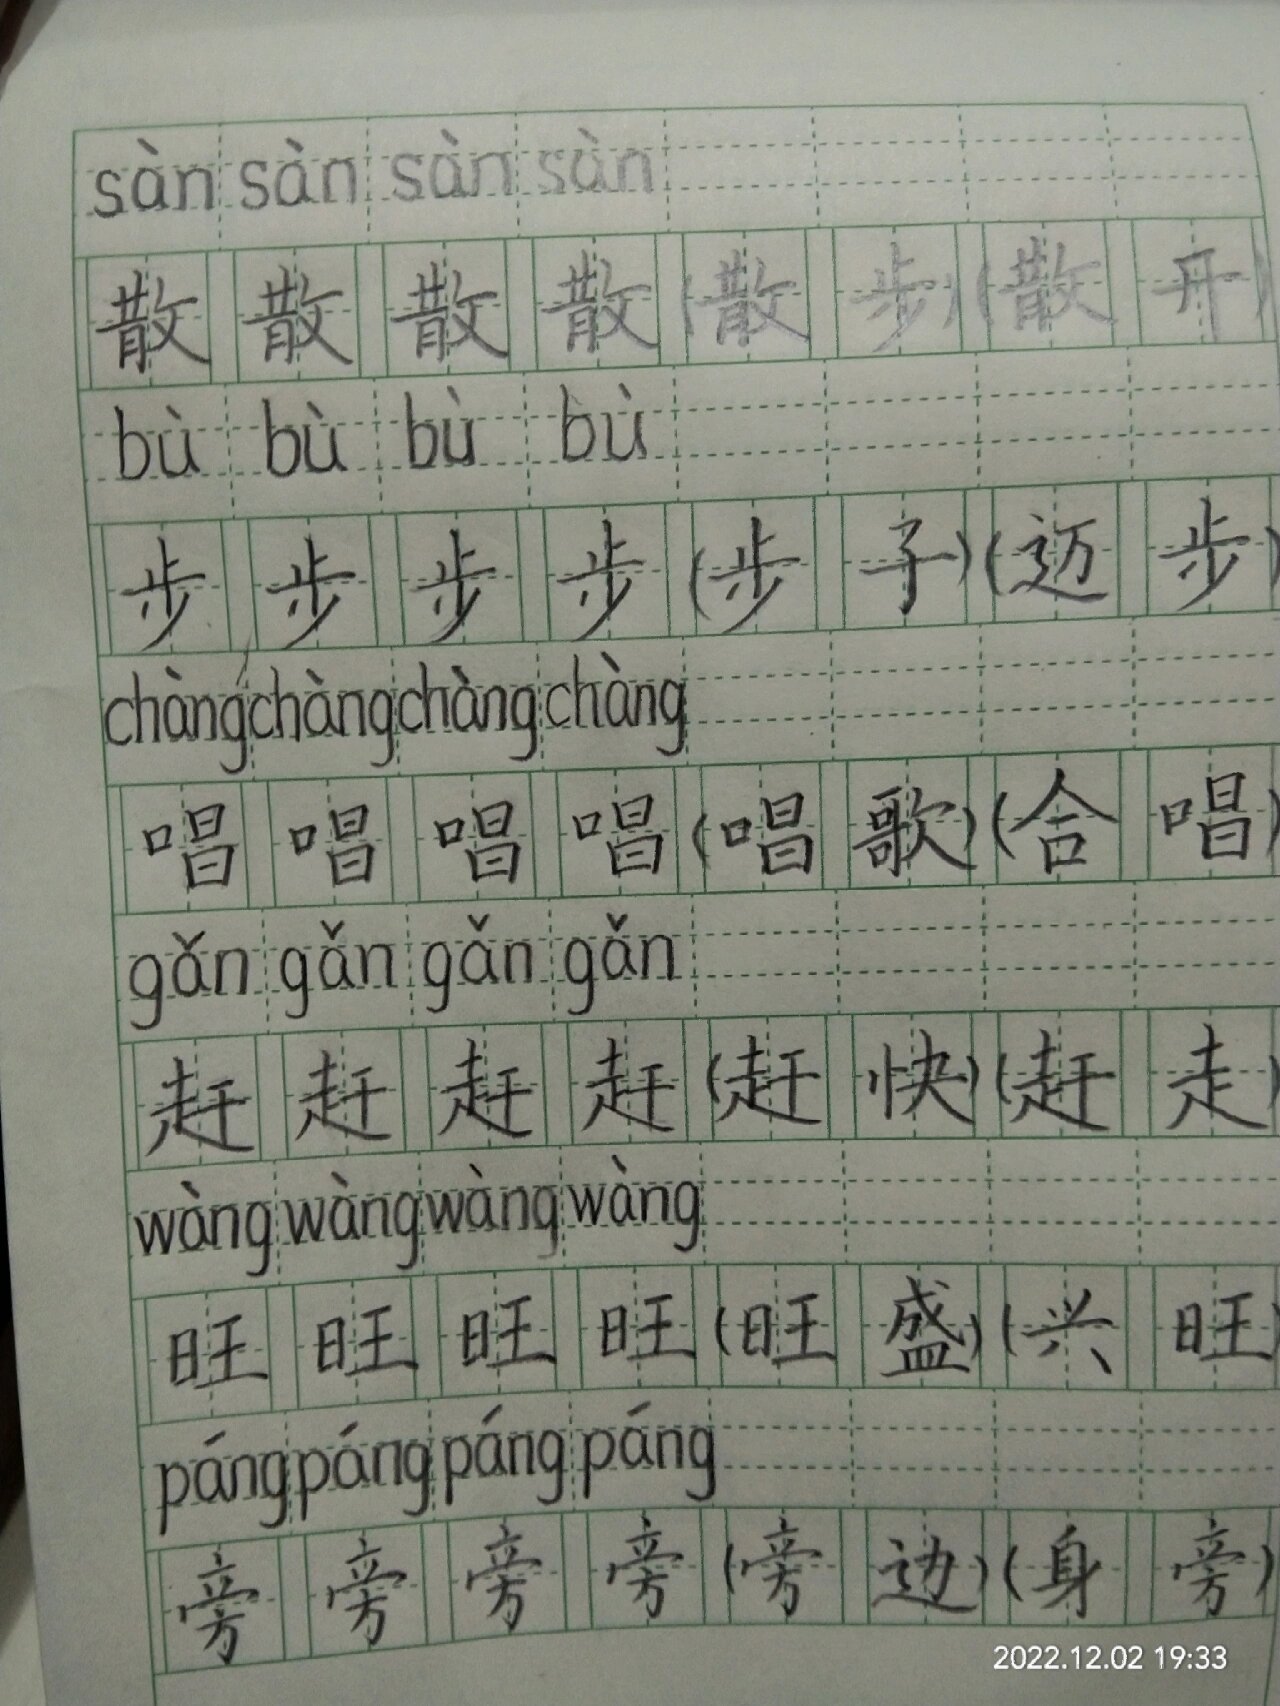 sàn sàn sàn sàn
散 散 散 散 (散 步) (散 开)
bù bù bù bù
步 步 步 步 (步 子) (迈 步)
chàng chàng chàng chàng
唱 唱 唱 唱 (唱 歌) (合 唱)
gǎn gǎn gǎn gǎn
赶 赶 赶 赶 (赶 快) (赶 走)
wàng wàng wàng wàng
旺 旺 旺 旺 (旺 盛) (兴 旺)
páng páng páng páng
旁 旁 旁 旁 (旁 边) (身 旁)
2022.12.02 19:33